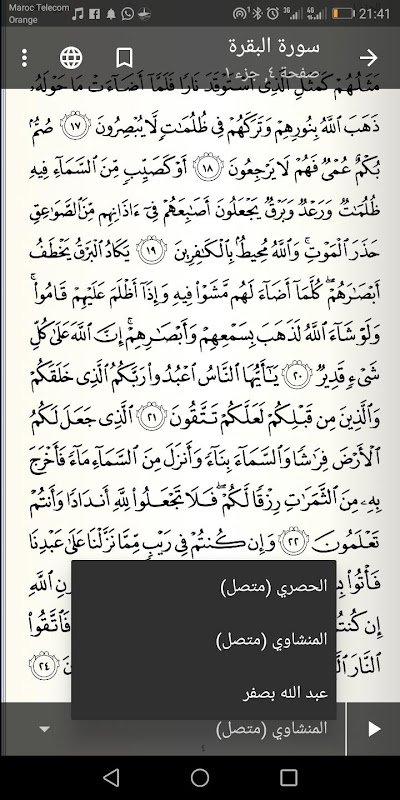 Maroc Telecom
Orange
21:41
سورة البقرة
صفحة ٤, جزء ١
مَثَلُهُمْ كَمَثَلِ ٱلَّذِى ٱسْتَوْقَدَ نَارًا فَلَمَّآ أَضَآءَتْ مَا حَوْلَهُۥ
ذَهَبَ ٱللَّهُ بِنُورِهِمْ وَتَرَكَهُمْ فِى ظُلُمَٰتٍ لَّا يُبْصِرُونَ ١٧ صُمٌّۢ
بُكْمٌ عُمْىٌ فَهُمْ لَا يَرْجِعُونَ ١٨ أَوْ كَصَيِّبٍ مِّنَ ٱلسَّمَآءِ فِيهِ
ظُلُمَٰتٌ وَرَعْدٌ وَبَرْقٌ يَجْعَلُونَ أَصَٰبِعَهُمْ فِىٓ ءَاذَانِهِم مِّنَ ٱلصَّوَٰعِقِ
حَذَرَ ٱلْمَوْتِ ۚ وَٱللَّهُ مُحِيطٌۢ بِٱلْكَٰفِرِينَ ١٩ يَكَادُ ٱلْبَرْقُ يَخْطَفُ
أَبْصَٰرَهُمْ ۖ كُلَّمَآ أَضَآءَ لَهُم مَّشَوْا۟ فِيهِ وَإِذَآ أَظْلَمَ عَلَيْهِمْ قَامُوا۟ ۚ
وَلَوْ شَآءَ ٱللَّهُ لَذَهَبَ بِسَمْعِهِمْ وَأَبْصَٰرِهِمْ ۚ إِنَّ ٱللَّهَ عَلَىٰ كُلِّ
شَىْءٍ قَدِيرٌ ٢٠ يَٰٓأَيُّهَا ٱلنَّاسُ ٱعْبُدُوا۟ رَبَّكُمُ ٱلَّذِى خَلَقَكُمْ
وَٱلَّذِينَ مِن قَبْلِكُمْ لَعَلَّكُمْ تَتَّقُونَ ٢١ ٱلَّذِى جَعَلَ لَكُمُ
ٱلْأَرْضَ فِرَٰشًا وَٱلسَّمَآءَ بِنَآءً وَأَنزَلَ مِنَ ٱلسَّمَآءِ مَآءً فَأَخْرَجَ
بِهِۦ مِنَ ٱلثَّمَرَٰتِ رِزْقًا لَّكُمْ ۖ فَلَا تَجْعَلُوا۟ لِلَّهِ أَندَادًا وَأَنتُمْ
تَعْلَمُونَ ٢٢ وَإِن كُنتُمْ فِى رَيْبٍ مِّمَّا نَزَّلْنَا عَلَىٰ عَبْدِنَا
فَأْتُوا۟ ٱللَّهِ
إِن فَٱتَّقُوا۟
ٱلنَّارَ ٢٤
الحصري (متصل)
المنشاوي (متصل)
عبد الله بصفر
المنشاوي (متصل)
٤